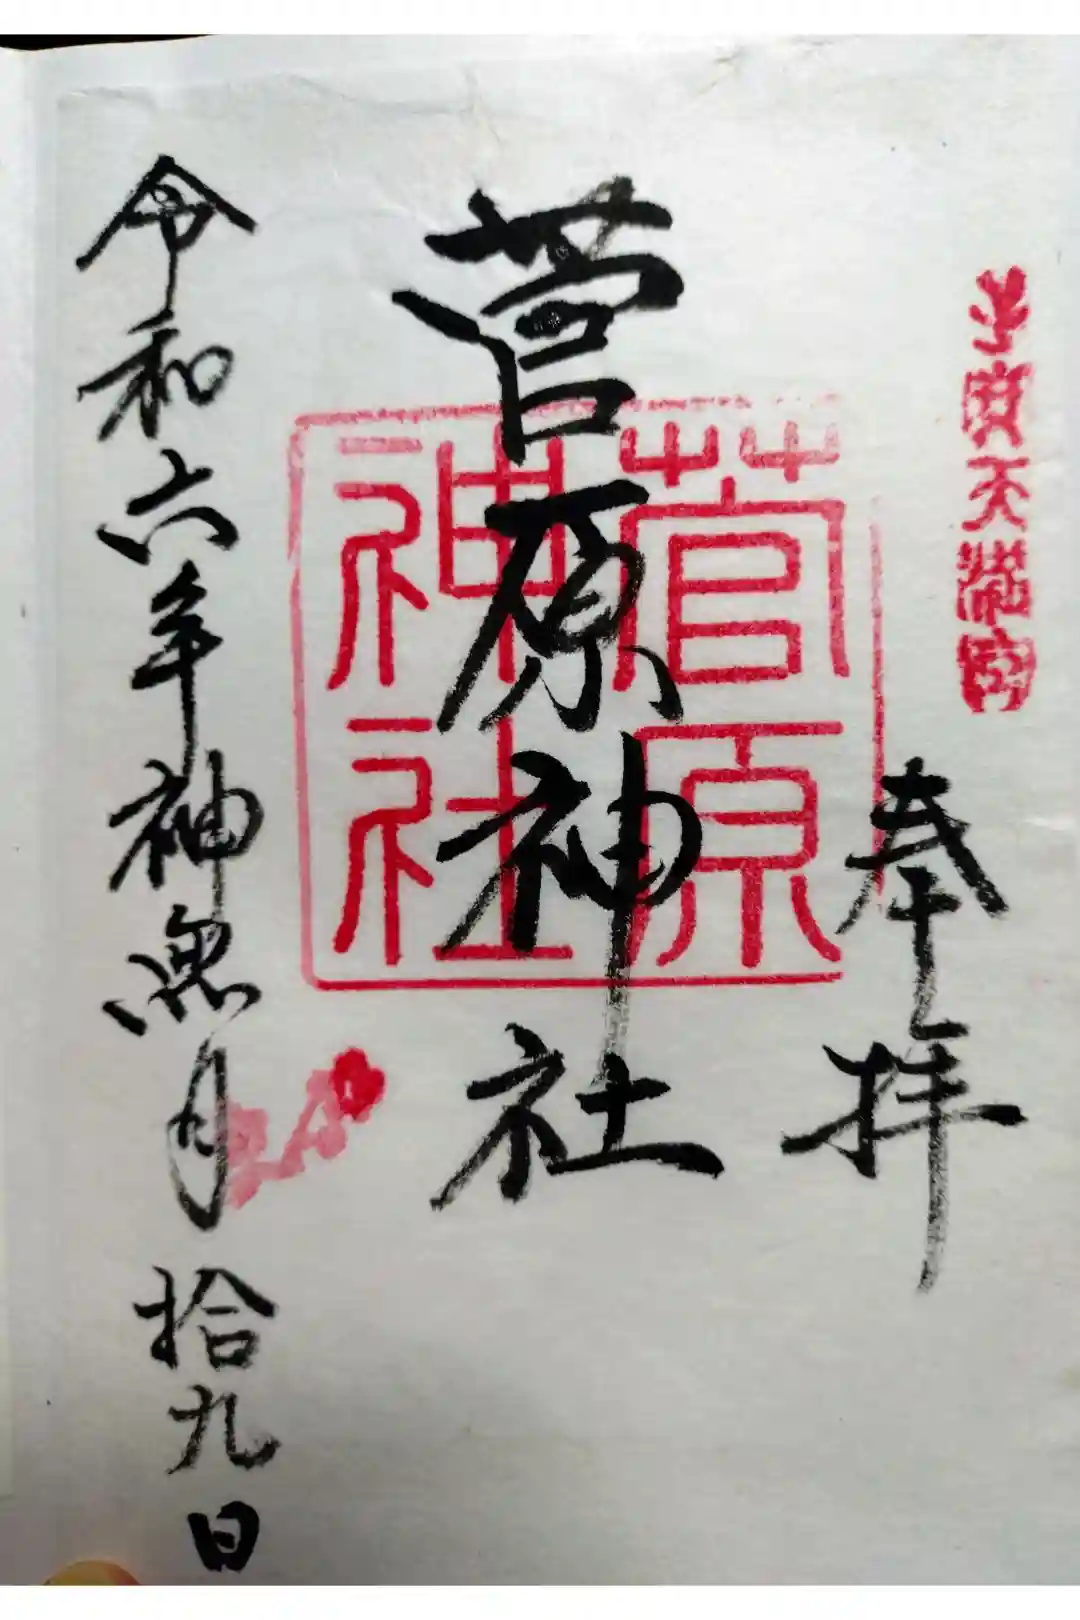 子宝天満宮
奉拝
菅原神社
菅原
神社
令和六年神無月拾九日